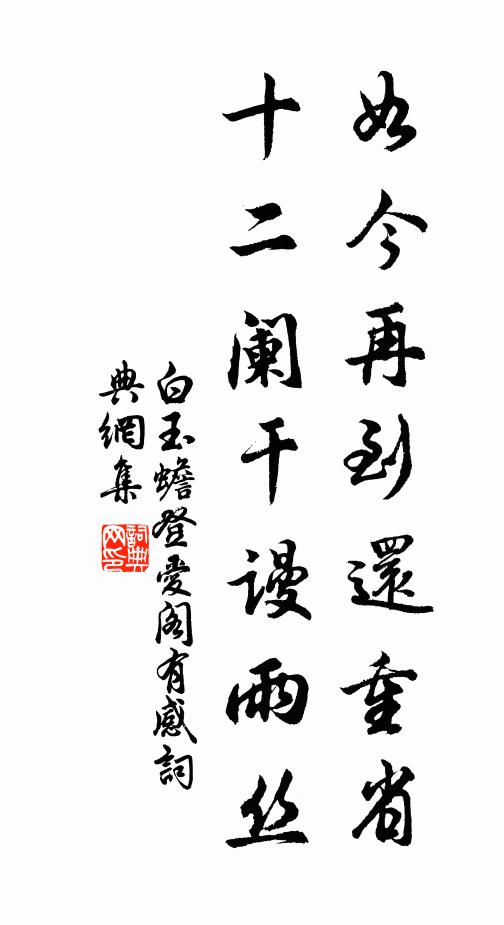 如今再到還重省
十二阑干謾雨丝
白玉蟾登愛閣有感詞
典網集
詞典
网印